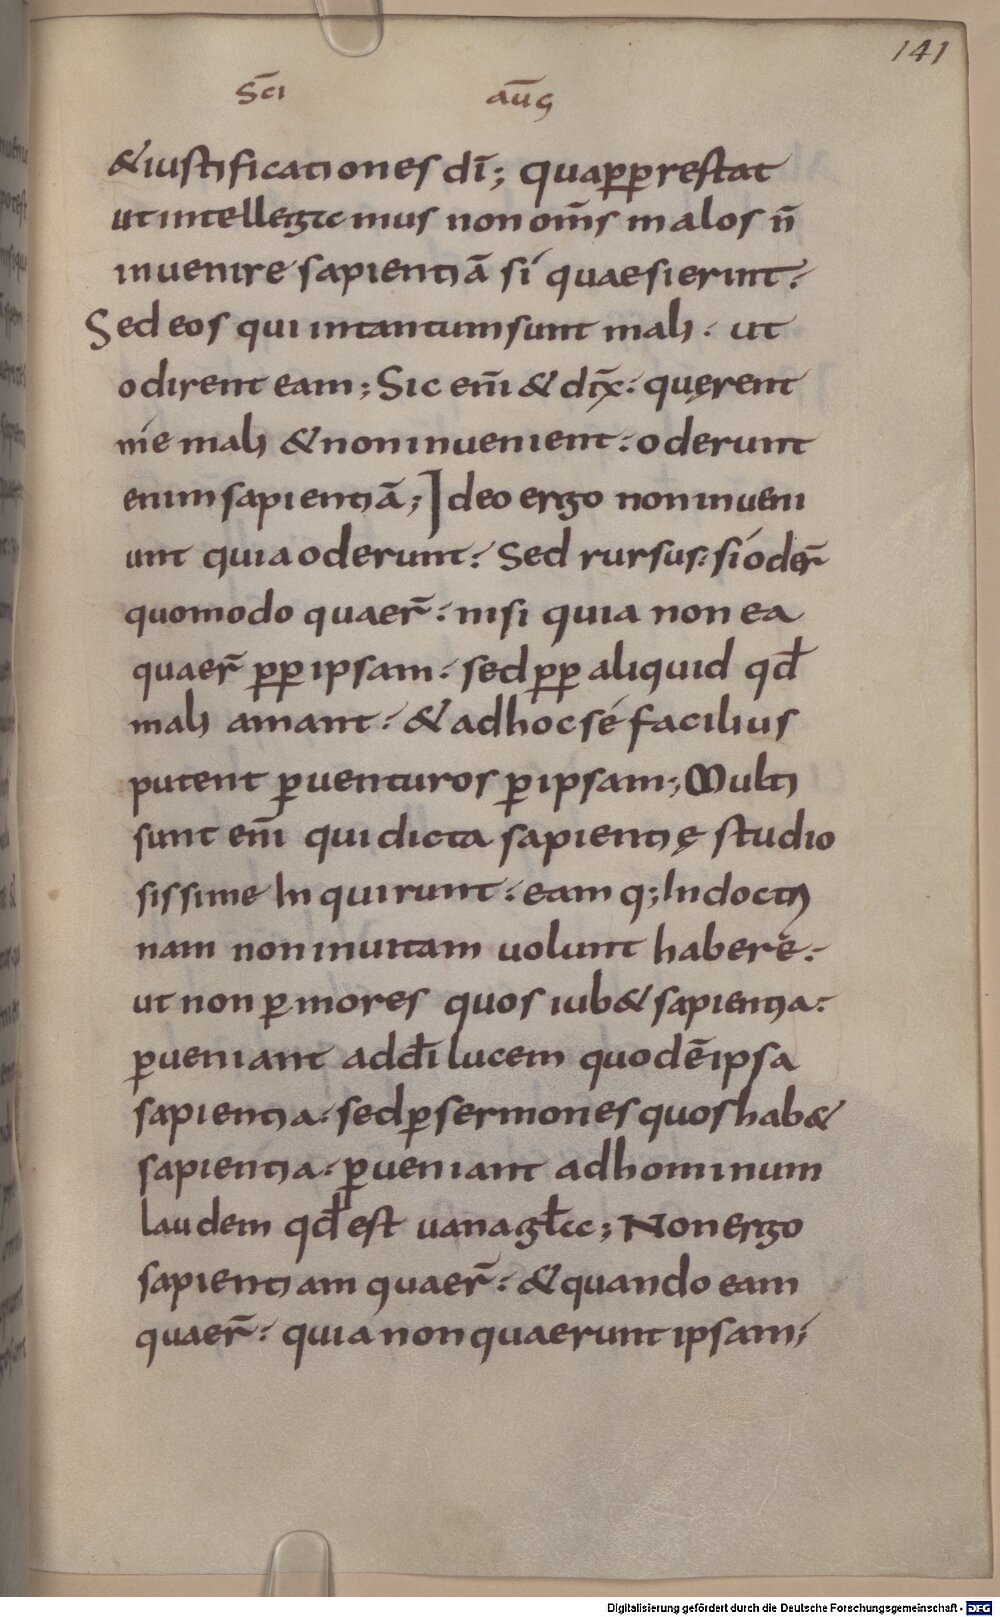 141
Sc̄i aūg
&iustificationes dī; quapp restat
ut intellegamus non om̄s malos n̄
inuenire sapientiā si quaesierint:
Sed eos qui intantum sunt mali · ut
odirent eam; Sic em̄ & dix̄: quęrent
me mali & non inuenient: oderunt
enim sapientiā; Ideo ergo non inueni
unt quia oderunt: Sed rursus: si oder̄
quomodo quaer̄: nisi quia non ea
quaer̄ pp ipsam: sed pp aliquid qđ
mali amant: & adhoc sé facilius
putent ꝑuenturos ꝑ ipsam; Multi
sunt em̄ qui dicta sapientię studio
sissime Inquirunt: eam q; In docti
nam non inuitam uolunt habere:
ut non ꝑ mores quos iub& sapientia:
ꝑueniant ad dī lucem quod ē ipsa
sapientia: sed ꝑ sermones quos hab&
sapientia: ꝑueniant ad hominum
laudem qđ est uana gła; Non ergo
sapientiam quaer̄: & quando eam
quaer̄: quia non quaerunt ipsam;
Digitalisierung gefördert durch die Deutsche Forschungsgemeinschaft - DFG